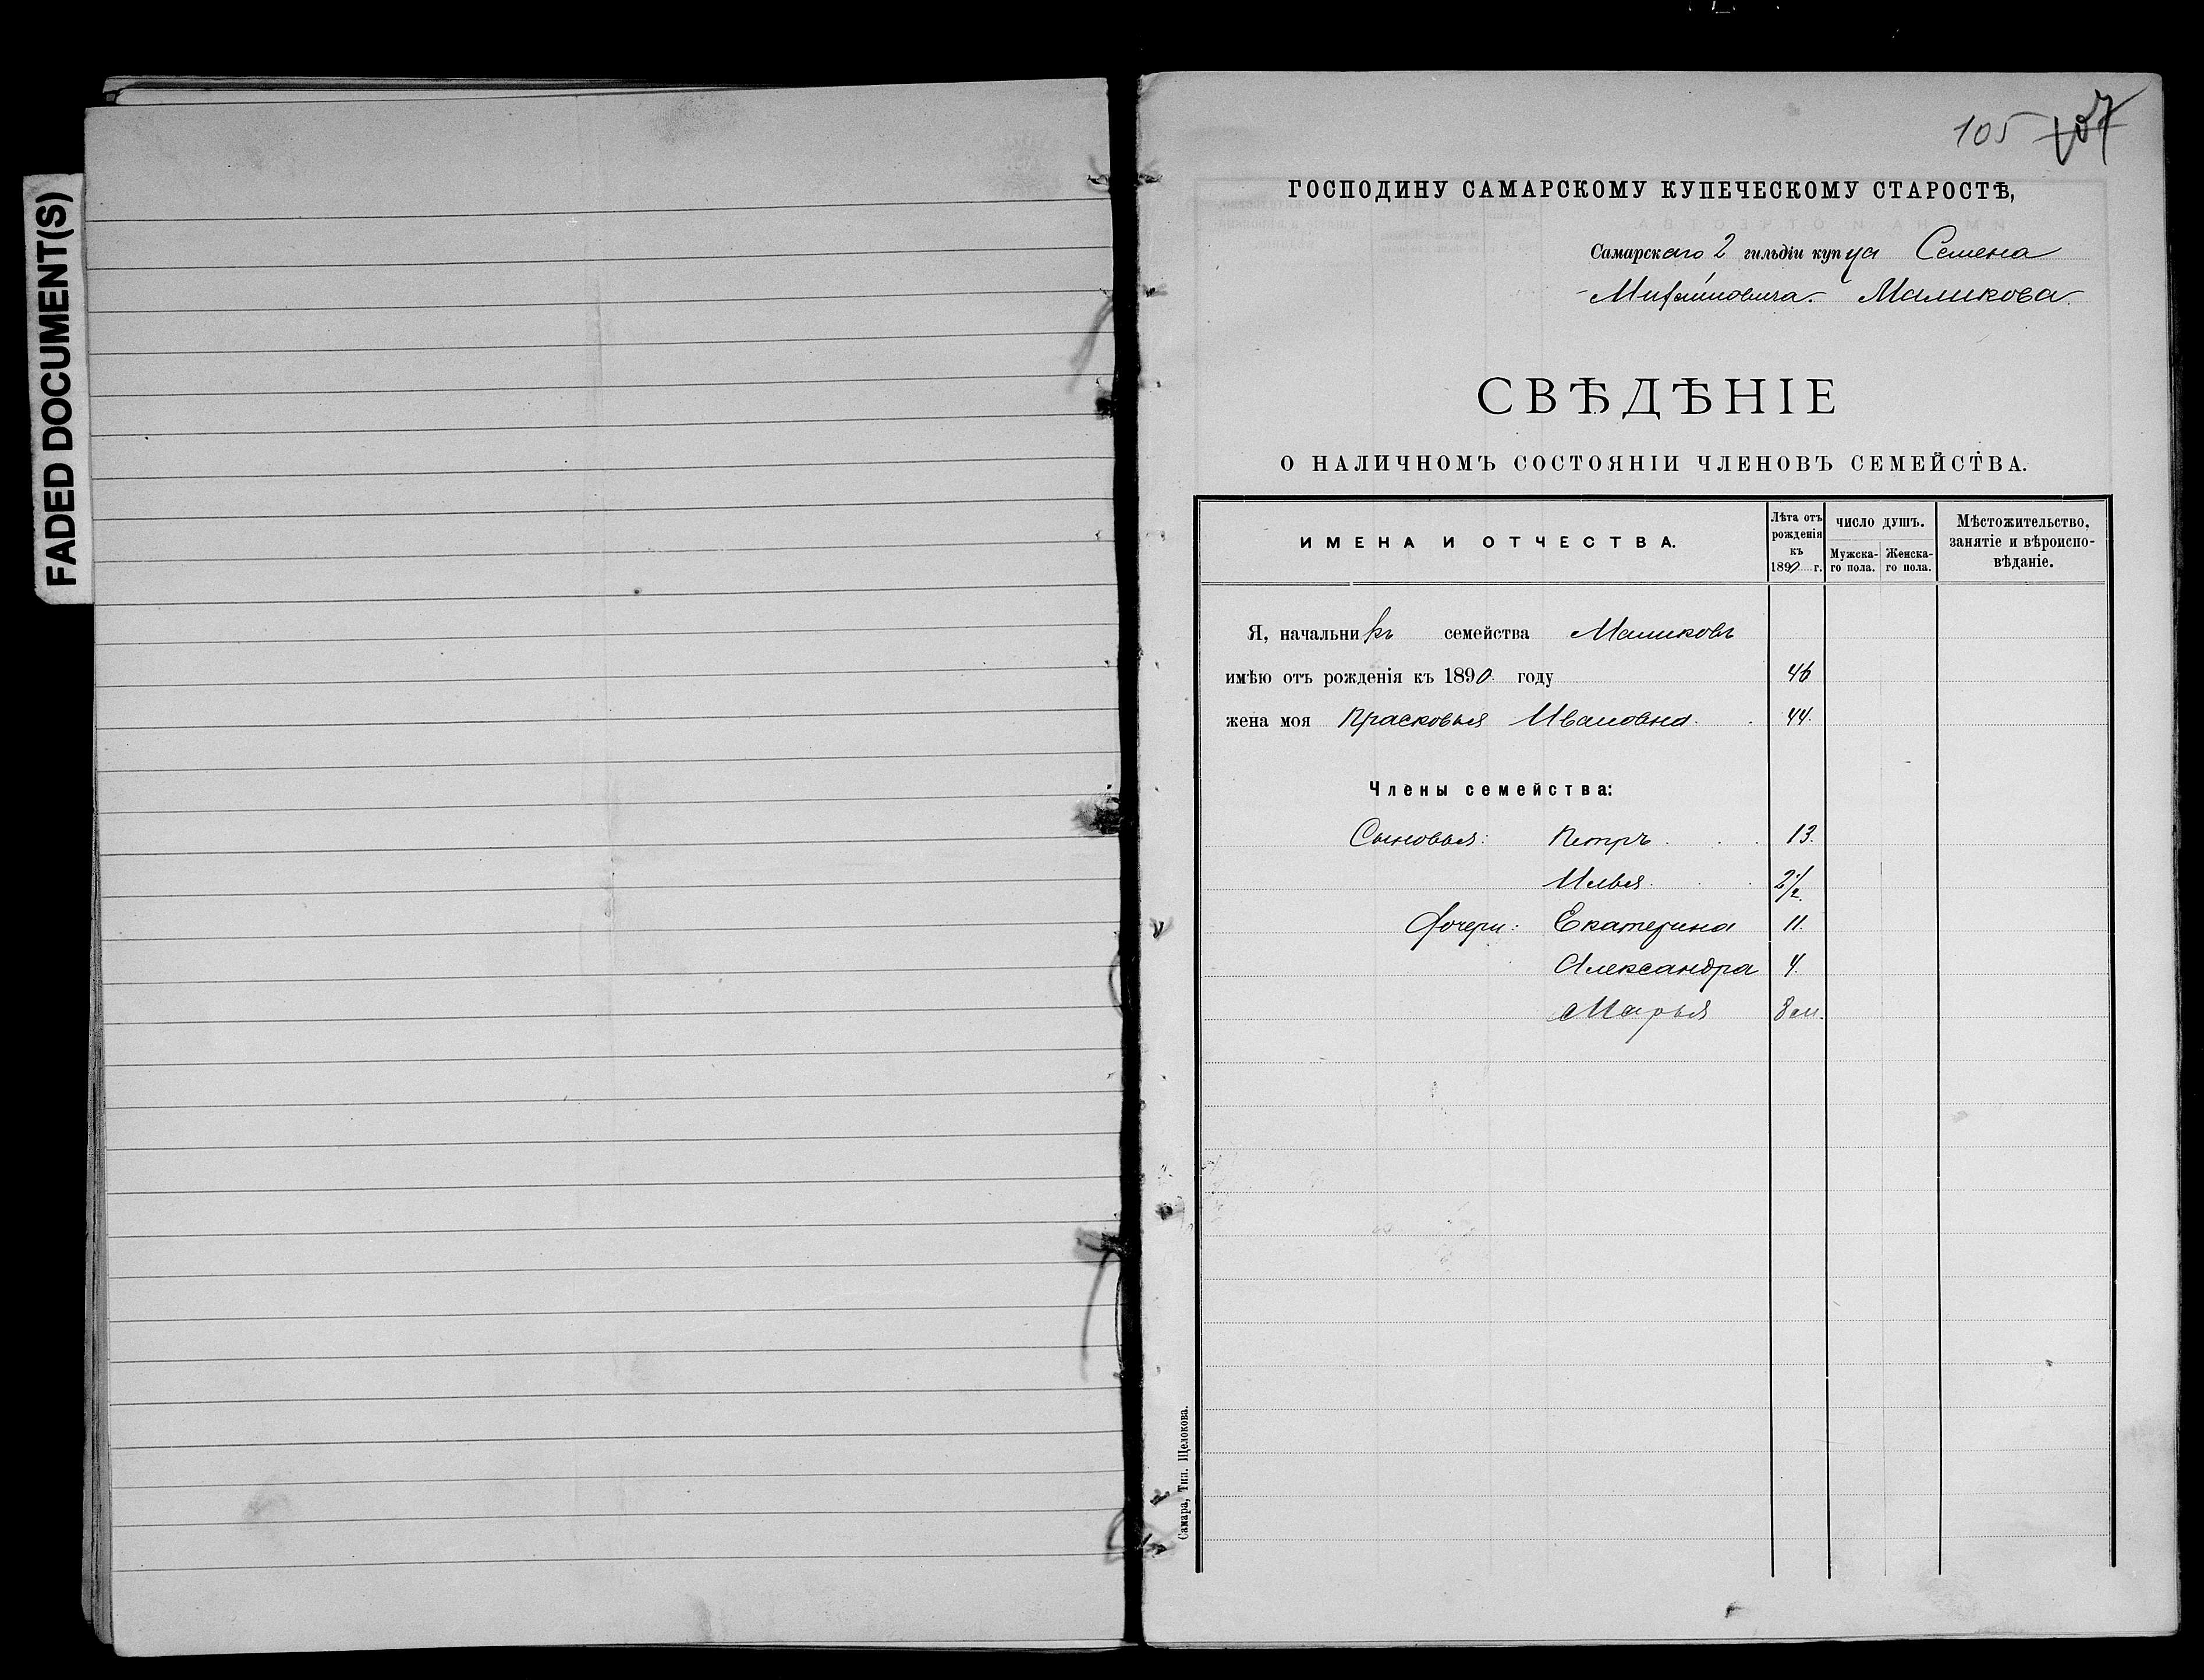 FADED DOCUMENT(S)
105 107
ГОСПОДИНУ САМАРСКОМУ КУПЕЧЕСКОМУ СТАРОСТѢ,
Самарскаго 2 гильдіи купца Семена
Маликова.
СВѢДѢНІЕ
О НАЛИЧНОМЪ СОСТОЯНІИ ЧЛЕНОВЪ СЕМЕЙСТВА.
ИМЕНА И ОТЧЕСТВА.
Лѣта отъ рожденія къ 1890 г.
ЧИСЛО ДУШЪ.
Мужска-го пола.
Женска-го пола.
Мѣстожительство, занятіе и вѣроиспо-вѣданіе.
Я, начальникъ семейства Маликовъ
имѣю отъ рожденія къ 1890 году 46
жена моя Прасковья Ивановна. 44.
Члены семейства:
Сыновья: Петръ 13.
Илья 2 1/2.
Дочери: Екатерина 11.
Александра 4.
Марья 8 м.
Самара, Тип. Щелокова.